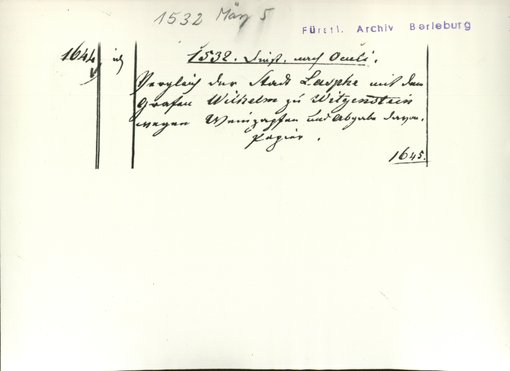 1532 März 5
Fürstl. Archiv Berleburg
1644
1532. Dinst. nach Oculi.
Vergleich der Stadt Laasphe mit dem
Grafen Wilhelm zu Witgenstein
wegen Weinzapfen und Abgabe davon.
Papier.
1645.